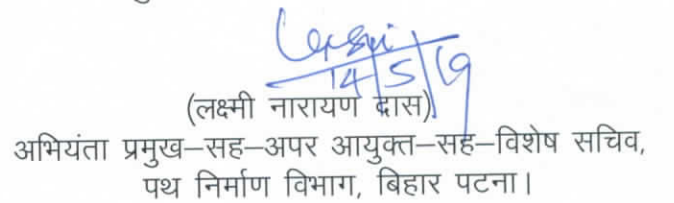 14/5/19
(लक्ष्मी नारायण दास)
अभियंता प्रमुख–सह–अपर आयुक्त–सह–विशेष सचिव,
पथ निर्माण विभाग, बिहार पटना।